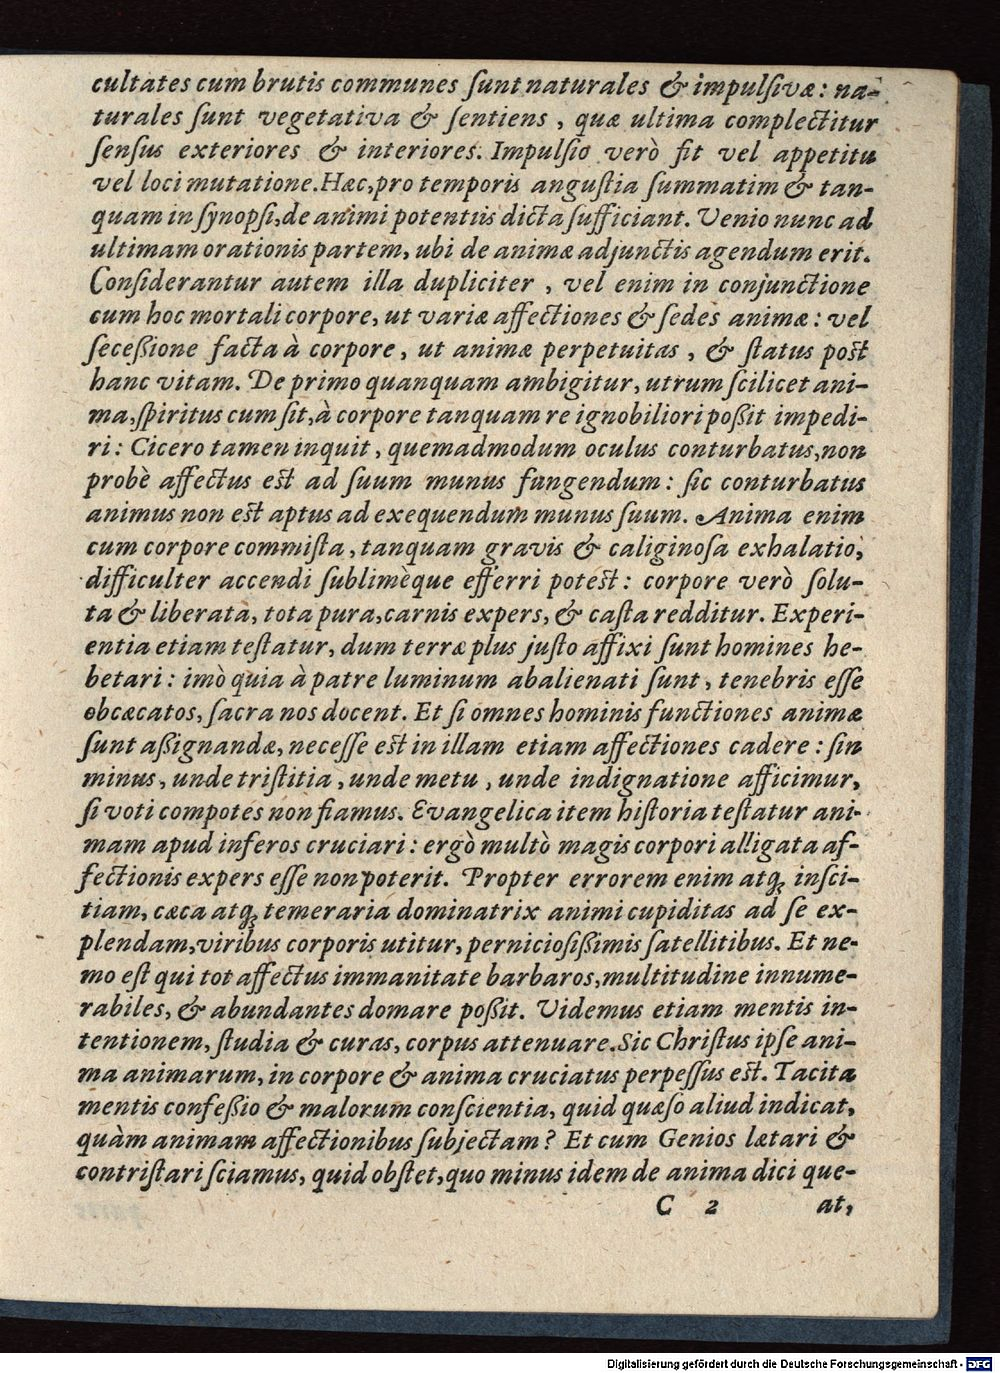 cultates cum brutis communes ſunt naturales & impulſivæ: na-
turales ſunt vegetativa & ſentiens, quæ ultima complectitur
ſenſus exteriores & interiores. Impulſio verò fit vel appetitu
vel loci mutatione. Hæc, pro temporis anguſtia ſummatim & tan-
quam in ſynopſi, de animi potentiis dicta ſufficiant. Venio nunc ad
ultimam orationis partem, ubi de animæ adjunctis agendum erit.
Conſiderantur autem illa dupliciter, vel enim in conjunctione
cum hoc mortali corpore, ut variæ affectiones & ſedes animæ: vel
ſeceßione facta à corpore, ut animæ perpetuitas, & ſtatus poſt
hanc vitam. De primo quanquam ambigitur, utrum ſcilicet ani-
ma, ſpiritus cum ſit, à corpore tanquam re ignobiliori poßit impedi-
ri: Cicero tamen inquit, quemadmodum oculus conturbatus, non
probè affectus eſt ad ſuum munus fungendum: ſic conturbatus
animus non eſt aptus ad exequendum munus ſuum. Anima enim
cum corpore commiſta, tanquam gravis & caliginoſa exhalatio,
difficulter accendi ſublimèque efferri poteſt: corpore verò ſolu-
ta & liberata, tota pura, carnis expers, & caſta redditur. Experi-
entia etiam teſtatur, dum terræ plus juſto affixi ſunt homines he-
betari: imò quia à patre luminum abalienati ſunt, tenebris eſſe
obcæcatos, ſacra nos docent. Et ſi omnes hominis functiones animæ
ſunt aßignandæ, neceſſe eſt in illam etiam affectiones cadere: ſin
minus, unde triſtitia, unde metu, unde indignatione afficimur,
ſi voti compotes non fiamus. Evangelica item hiſtoria teſtatur ani-
mam apud inferos cruciari: ergò multò magis corpori alligata af-
fectionis expers eſſe non poterit. Propter errorem enim atq; inſci-
tiam, cæca atq; temeraria dominatrix animi cupiditas ad ſe ex-
plendam, viribus corporis utitur, pernicioſißimis ſatellitibus. Et ne-
mo eſt qui tot affectus immanitate barbaros, multitudine innume-
rabiles, & abundantes domare poßit. Videmus etiam mentis in-
tentionem, ſtudia & curas, corpus attenuare. Sic Chriſtus ipſe ani-
ma animarum, in corpore & anima cruciatus perpeſſus eſt. Tacita
mentis confeßio & malorum conſcientia, quid quæſo aliud indicat,
quàm animam affectionibus ſubjectam? Et cum Genios lætari &
contriſtari ſciamus, quid obſtet, quo minus idem de anima dici que-
C 2 at,
Digitalisierung gefördert durch die Deutsche Forschungsgemeinschaft - DFG